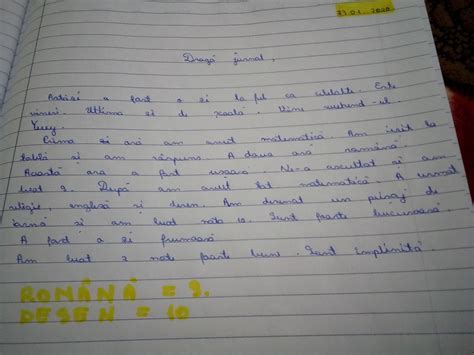 27.01.2020
Dragă jurnal,
Astăzi a fost o zi la fel ca celelalte. Este
vineri. Ultima zi de școală. Vine weekend-ul.
Yeeey.
Prima zi oră am avut matematică. Am ieșit la
tablă și am răspuns. A doua oră română.
Această ora a fost ușoara. Ne-a ascultat și am
luat 9. După am avut tot matematică. A urmat
religie, engleză și desen. Am desenat un peisaj de
iarnă și am luat nota 10. Sunt foarte bucuroasă.
A fost o zi frumoasă
Am luat 2 note foarte bune. Sunt împlinită
ROMÂNĂ = 9.
DESEN = 10